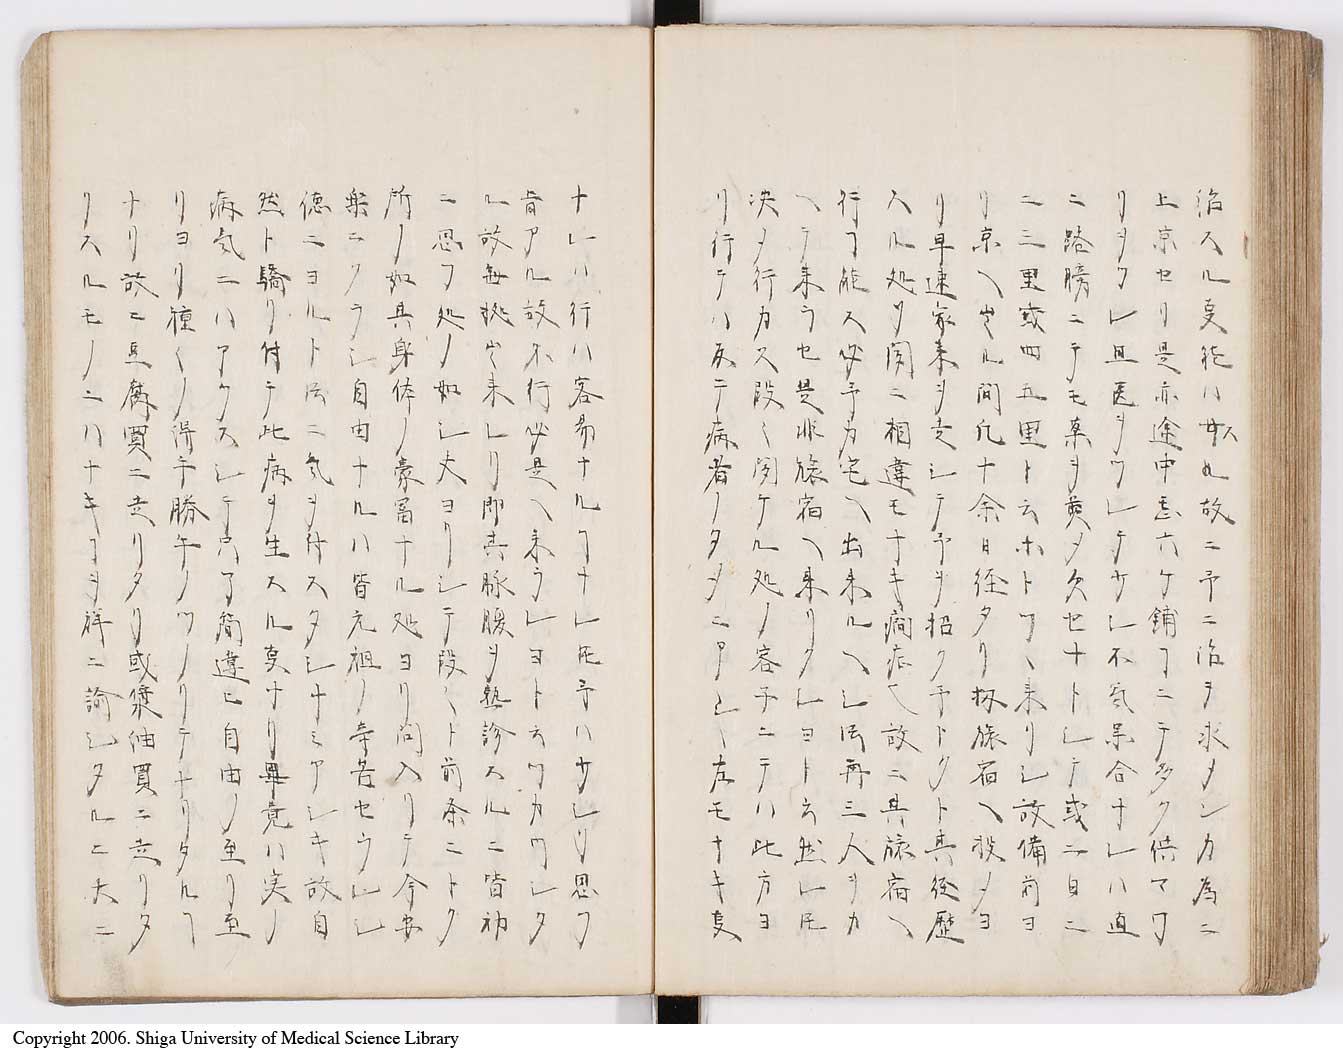 治スル叓能ハサル故ニ予ニ治ヲ求メンカ為ニ
上京セリ是亦途中六ケ鋪フニテ多ク供マワ
リヲクレ且医ヲクレテサレ不気呆合ナレハ直
ニ路膀ニテモ薬ヲ煎メ欠セナトレテ或二日ニ
二三里或四五里ト云ホトツヽ来リシ故備前ヨ
リ京ヘ登ル間凡十余日経タリ扨旅宿ヘ投メヨ
リ早速家来ヲ走シテ予ヲ招ク予トクト其経歴
スル処ヲ関ニ相違モナキ癇症也故ニ其旅宿ヘ
行フ能ス必予カ宅ヘ出来ルヘシ㪽再三人ヲカ
ヘテ来ラセ是非旅宿ヘ来リクレヨト云然レ𪜈
决メ行カス段々関ケル処ノ容子ニテハ此方ヨ
リ行テハ反テ病者ノタメニアシヽ左モナキ叓
ナレハ行ハ容易ナルフナレ𪜈予ハサレリ思フ
旨アル故不行必是ヘ来ラレヨト云ツカワレタ
ル故毎拠登来レリ即其脉腹ヲ熟診スルニ皆初
ニ思フ処ノ如シ丈ヨリシテ段々ト前条ニトク
所ノ如其身体ノ豪冨ナル処ヨリ問入リテ今安
楽ニクラシ自由ナルハ皆元祖ノ辛苦セラレシ
徳ニヨルト㪽ニ気ヲ付スタシナミアシキ故自
然ト驕リ付テ此病ヲ生スル叓ナリ畢竟ハ実ノ
病気ニハアラスシテ只了簡違ヒ自由ノ至リ至
リヨリ種々ノ得手勝手ノツノリテナリタルフ
ナリ故ニ豆腐買ニ走リタリ或傘油買ニ走リタ
リスルモノニハナキフヲ祥ニ諭シタルニ大ニ